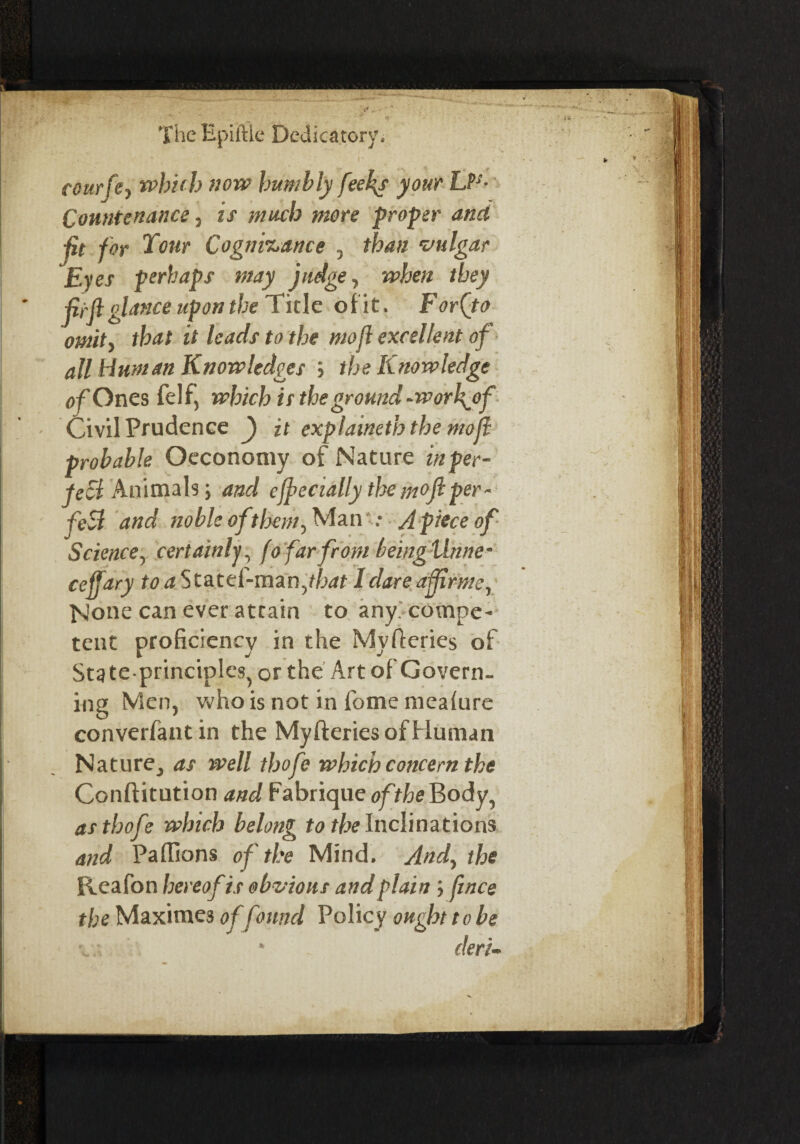 The Epiſtle Dedicatory.
courſe, which now humbly ſeeks your LPs.
Countenance, is much more proper and
fit for Your Cognizance, than vulgar
Eyes perhaps may judge, when they
firſt glance upon the Title of it. For (to
omit, that it leads to the moſt excellent of
all Human Knowledges; the Knowledge
of Ones ſelf, which is the ground-work of
Civil Prudence) it explaineth the moſt
probable Oeconomy of Nature in per-
fect Animals; and eſpecially the moſt per-
fect and noble of them, Man: A piece of
Science, certainly, ſo far from being Unne-
ceſſary to a Stateſ-man, that I dare affirme,
None can ever attain to any compe-
tent proficiency in the Myſteries of
State-principles, or the Art of Govern-
ing Men, who is not in ſome meaſure
converſant in the Myſteries of Human
Nature, as well thoſe which concern the
Conſtitution and Fabrique of the Body,
as thoſe which belong to the Inclinations
and Paſſions of the Mind. And, the
Reaſon hereof is obvious and plain; ſince
the Maximes of ſound Policy ought to be
deri-